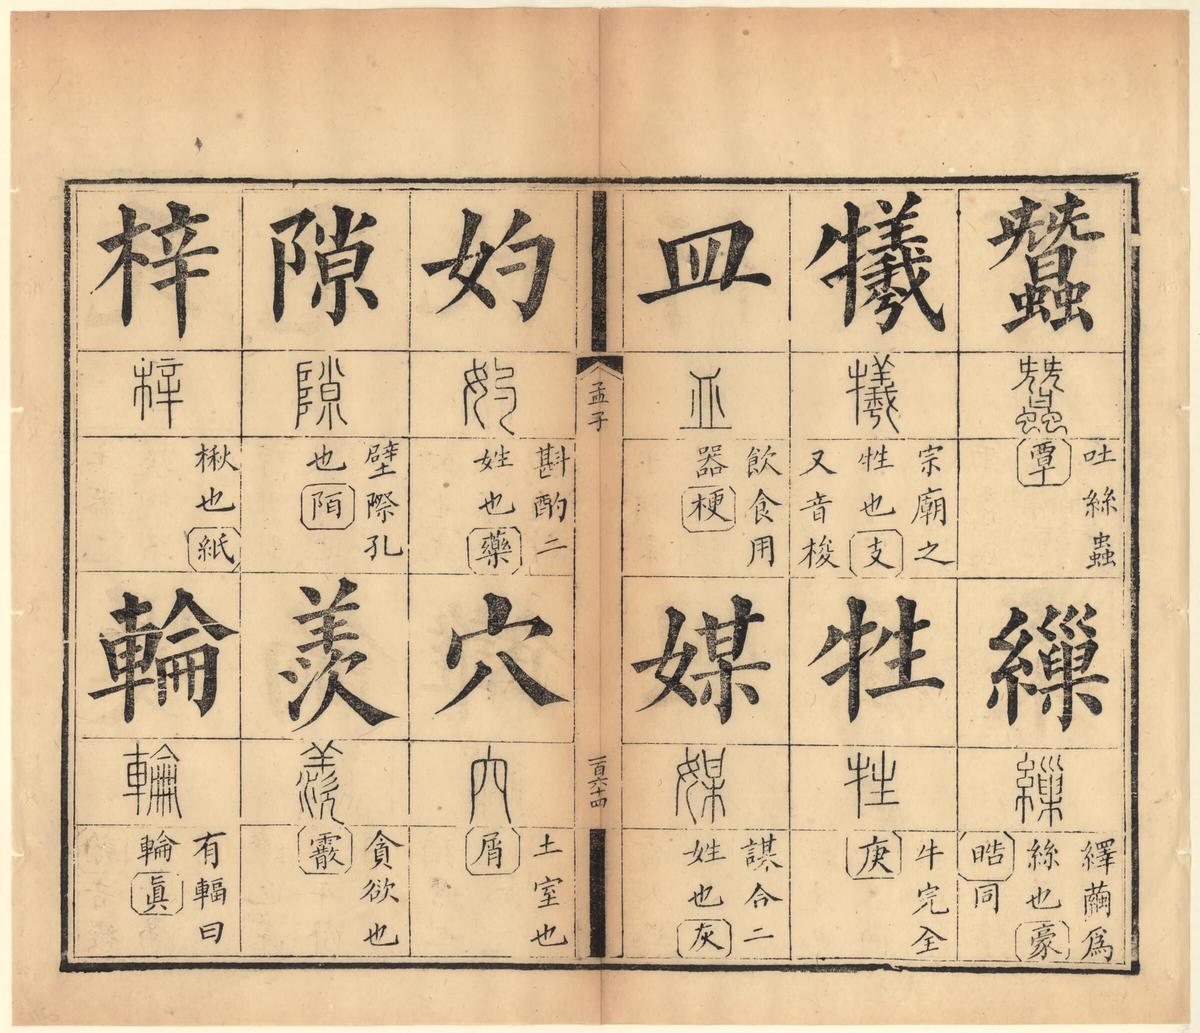 蠶
蠶
吐絲蟲
覃
繅
繅
繹繭爲
絲也豪
晧同
犧
犧
宗廟之
牲也支
又音梭
牲
牲
牛完全
庚
皿
皿
飲食用
器梗
媒
媒
謀合二
姓也灰
孟子
一百六十四
妁
妁
斟酌二
姓也藥
穴
穴
土室也
屑
隙
隙
壁際孔
也陌
羨
羨
貪欲也
霰
梓
梓
楸也紙
輪
輪
有輻曰
輪眞